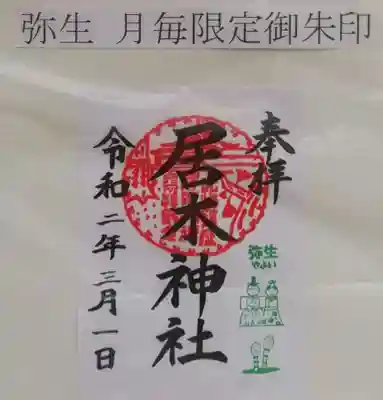 弥生 月毎限定御朱印
奉拝
弥生
やよい
居木神社
令和二年三月一日